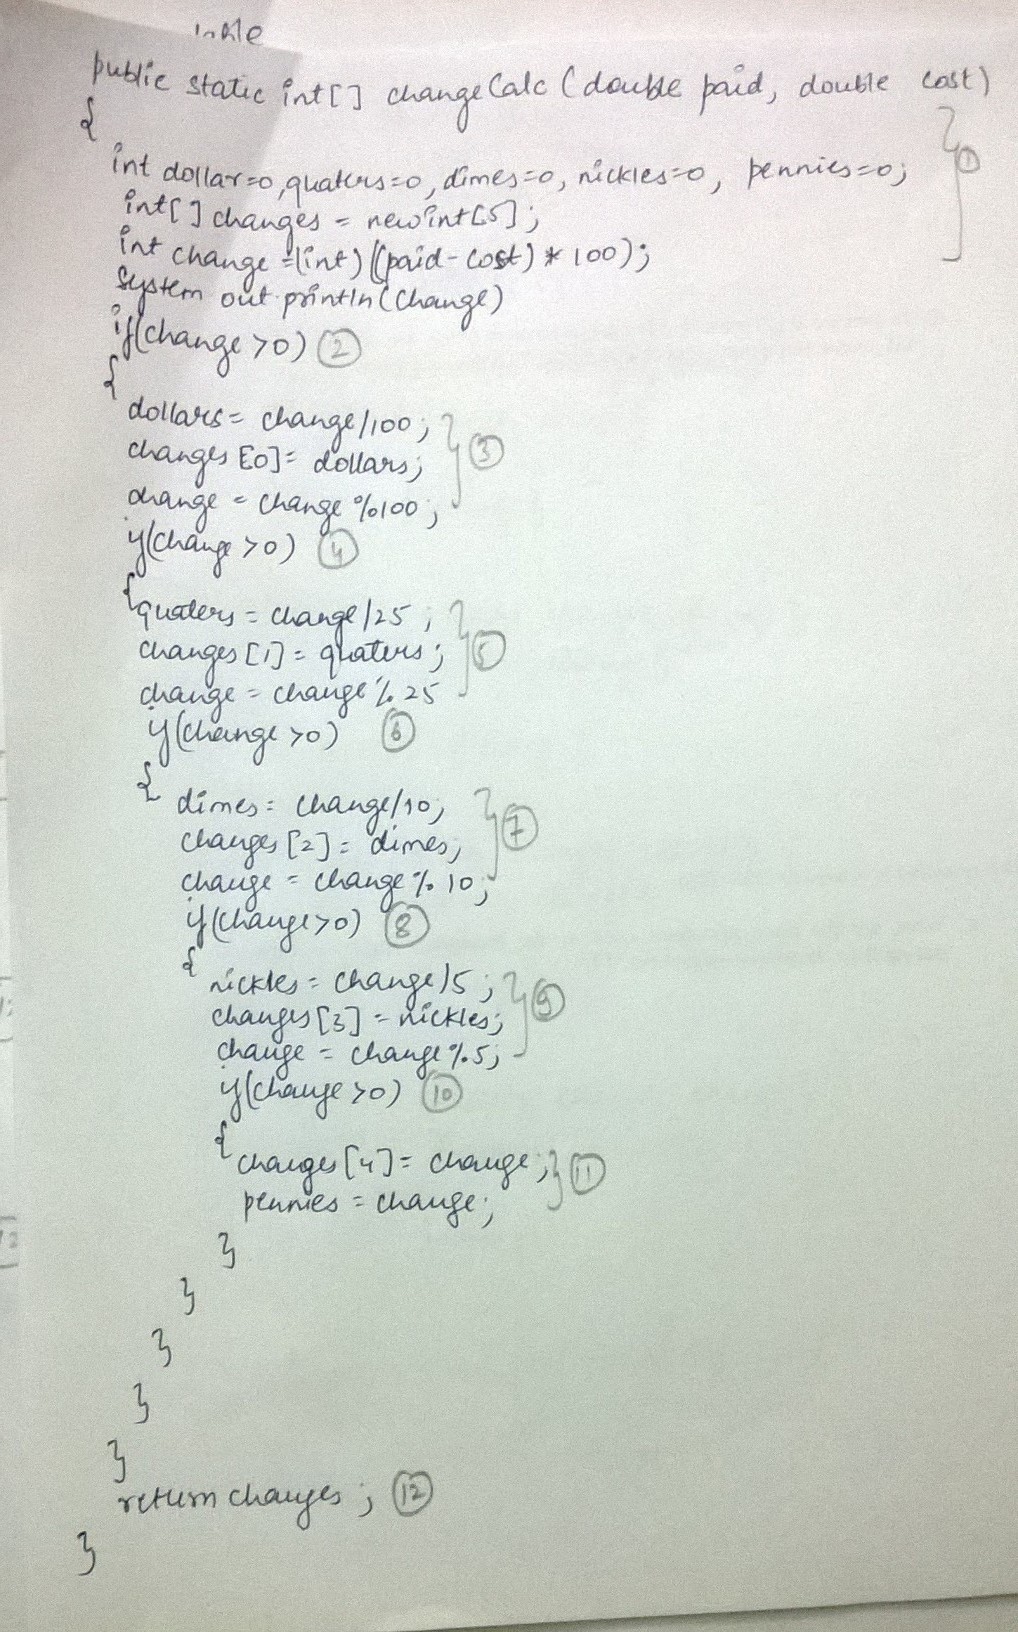 public static int[] changeCalc (double paid, double cost)
{
int dollar=0, quaters=0, dimes=0, nickles=0, pennies=0; ①
int[] changes = new int[5];
int change =(int)((paid-cost) * 100);
System out.println(change)
if(change >0) ②
{
dollars= change/100;
changes [0]= dollars; ③
change = change %100;
if(change >0) ④
{
quaters = change/25;
changes [1] = quaters; ⑤
change = change % 25
if(change >0) ⑥
{ dimes= change/10;
changes [2] = dimes; ⑦
change = change % 10;
if(change>0) ⑧
{
nickles = change/5;
changes [3] = nickles; ⑨
change = change %5;
if(change >0) ⑩
{
changes [4] = change; ⑪
pennies = change;
}
}
}
}
}
return changes; ⑫
}